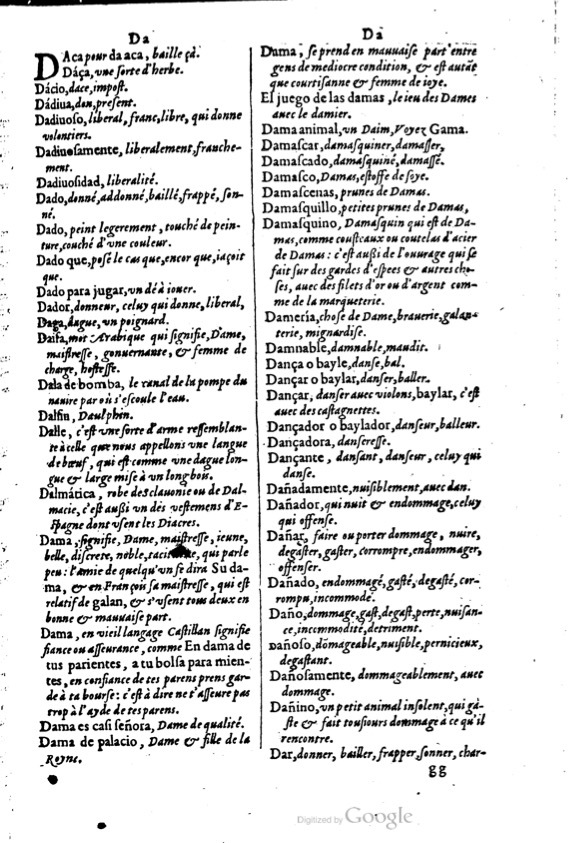 Da
DAca pour da aca, baille çà.
Dáça, vne sorte d'herbe.
Dácio, dace, impost.
Dádiua, don, present.
Dadiuoso, liberal, franc, libre, qui donne
volontiers.
Dadiuosamente, liberalement, franche-
ment.
Dadiuosidad, liberalité.
Dado, donné, addonné, baillé, frappé, son-
né.
Dado, peint legerement, touché de pein-
ture, couché d'vne couleur.
Dado que, posé le cas que, encor que, iaçoit
que.
Dado para jugar, vn dé à iouer.
Dador, donneur, celuy qui donne, liberal,
Daga, dague, vn poignard.
Daifa, mot Arabique qui signifie, Dame,
maistresse, gouuernante, & femme de
charge, hostesse.
Dala de bomba, le canal de la pompe du
nauire par où s'escoule l'eau.
Dalfin, Daulphin.
Dalle, c'est vne sorte d'arme ressemblan-
te à celle que nous appellons vne langue
de bœuf, qui est comme vne dague lon-
gue & large mise à vn long bois.
Dalmática, robe de Sclauonie ou de Dal-
macie, c'est außi vn des vestemens d'E-
spagne dont vsent les Diacres.
Dama, signifie, Dame, maistresse, ieune,
belle, discrete, noble, qui parle
peu: l'amie de quelqu'vn se dira Su da-
ma, & en François sa maistresse, qui est
relatif de galan, & s'vsent tous deux en
bonne & mauuaise part.
Dama, en vieil langage Castillan signifie
fiance ou asseurance, comme En dama de
tus parientes, a tu bolsa para mien-
tes, en confiance de tes parens prens gar-
de à ta bourse: c'est à dire ne t'asseure pas
trop à l'ayde de tes parens.
Dama es casi señora, Dame de qualité.
Dama de palacio, Dame & fille de la
Royne.
Da
Dama, se prend en mauuaise part entre
gens de mediocre condition, & est autāt
que courtisanne & femme de ioye.
El juego de las damas, le ieu des Dames
auec le damier.
Dama animal, vn Daim, Voyez Gama.
Damascar, damasquiner, damasser,
Damascado, damasquiné, damassé.
Damasco, Damas, estoffe de soye.
Damascenas, prunes de Damas.
Damasquillo, petites prunes de Damas,
Damasquino, Damasquin qui est de Da-
mas, comme cousteaux ou coutelas d'acier
de Damas: c'est außi de l'ouurage qui se
fait sur des gardes d'espees & autres cho-
ses, auec des filets d'or ou d'argent com-
me de la marqueterie.
Damería, chose de Dame, brauerie, galan-
terie, mignardise.
Damnable, damnable, maudit.
Dança o bayle, danse, bal.
Dançar o baylar, danser, baller.
Dançar, danser auec violons, baylar, c'est
auec des castagnettes.
Dançador o baylador, danseur, balleur.
Dançadora, danseresse.
Dançante, dansant, danseur, celuy qui
danse.
Dañadamente, nuisiblement, auec dan.
Dañador, qui nuit & endommage, celuy
qui offense.
Dañar, faire ou porter dommage, nuire,
degaster, gaster, corrompre, endommager,
offenser.
Dañado, endommagé, gasté, degasté, cor-
rompu, incommodé.
Daño, dommage, gast, degast, perte, nuisan-
ce, incommodité, detriment.
Dañoso, domageable, nuisible, pernicieux,
degastant.
Dañosamente, dommageablement, auec
dommage.
Dañino, vn petit animal insolent, qui gā-
ste & fait tousiours dommage à ce qu'il
rencontre.
Dar, donner, bailler, frapper, sonner, char-
gg
Digitized by Google